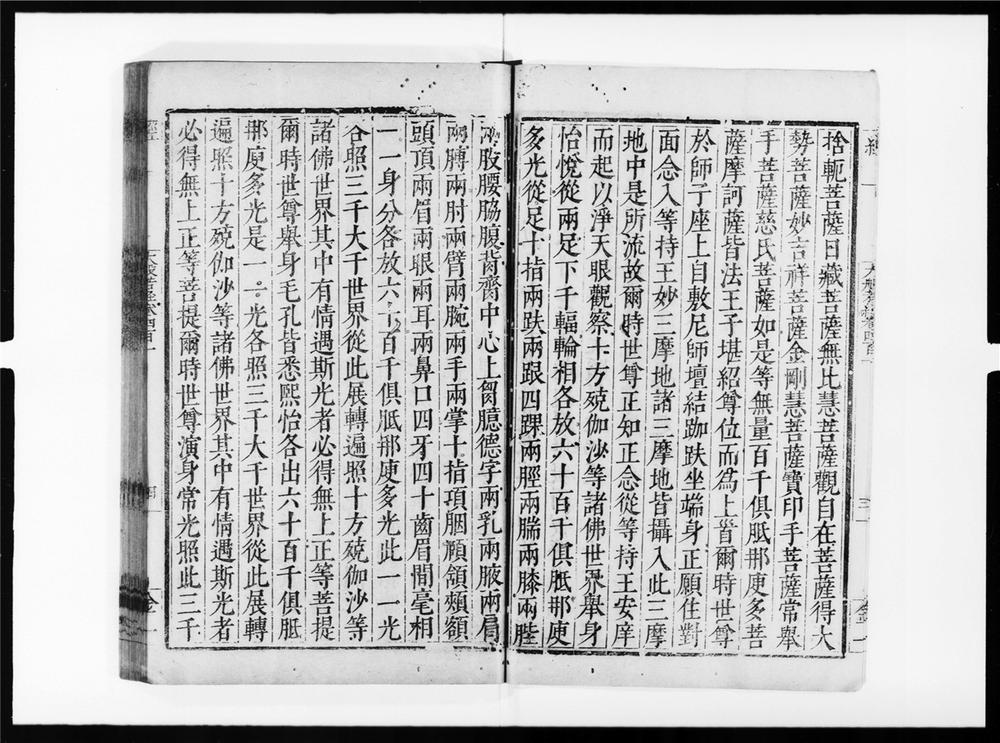 捨軛菩薩日藏菩薩無比慧菩薩觀自在菩薩得大
勢菩薩妙吉祥菩薩金剛慧菩薩寶印手菩薩常舉
手菩薩慈氏菩薩如是等無量百千俱胝那庾多菩
薩摩訶薩皆法王子堪紹尊位而爲上首爾時世尊
於師子座上自敷尼師壇結跏趺坐端身正願住對
面念入等持王妙三摩地諸三摩地皆攝入此三摩
地中是所流故爾時世尊正知正念從等持王安庠
而起以淨天眼觀察十方殑伽沙等諸佛世界舉身
怡悅從兩足下千輻輪相各放六十百千俱胝那庾
多光從足十指兩趺兩跟四踝兩脛兩腨兩膝兩䏶
兩股腰脇腹背齊中心上𦙄臆德字兩乳兩腋兩肩
兩膊兩肘兩臂兩腕兩手兩掌十指項胭頤頷頰額
頭頂兩眉兩眼兩耳兩鼻口四牙四十齒眉間毫相
一一身分各放六十百千俱胝那庾多光此一一光
各照三千大千世界從此展轉遍照十方殑伽沙等
諸佛世界其中有情遇斯光者必得無上正等菩提
爾時世尊舉身毛孔皆悉熙怡各出六十百千俱胝
那庾多光是一一光各照三千大千世界從此展轉
遍照十方殑伽沙等諸佛世界其中有情遇斯光者
必得無上正等菩提爾時世尊演身常光照此三千